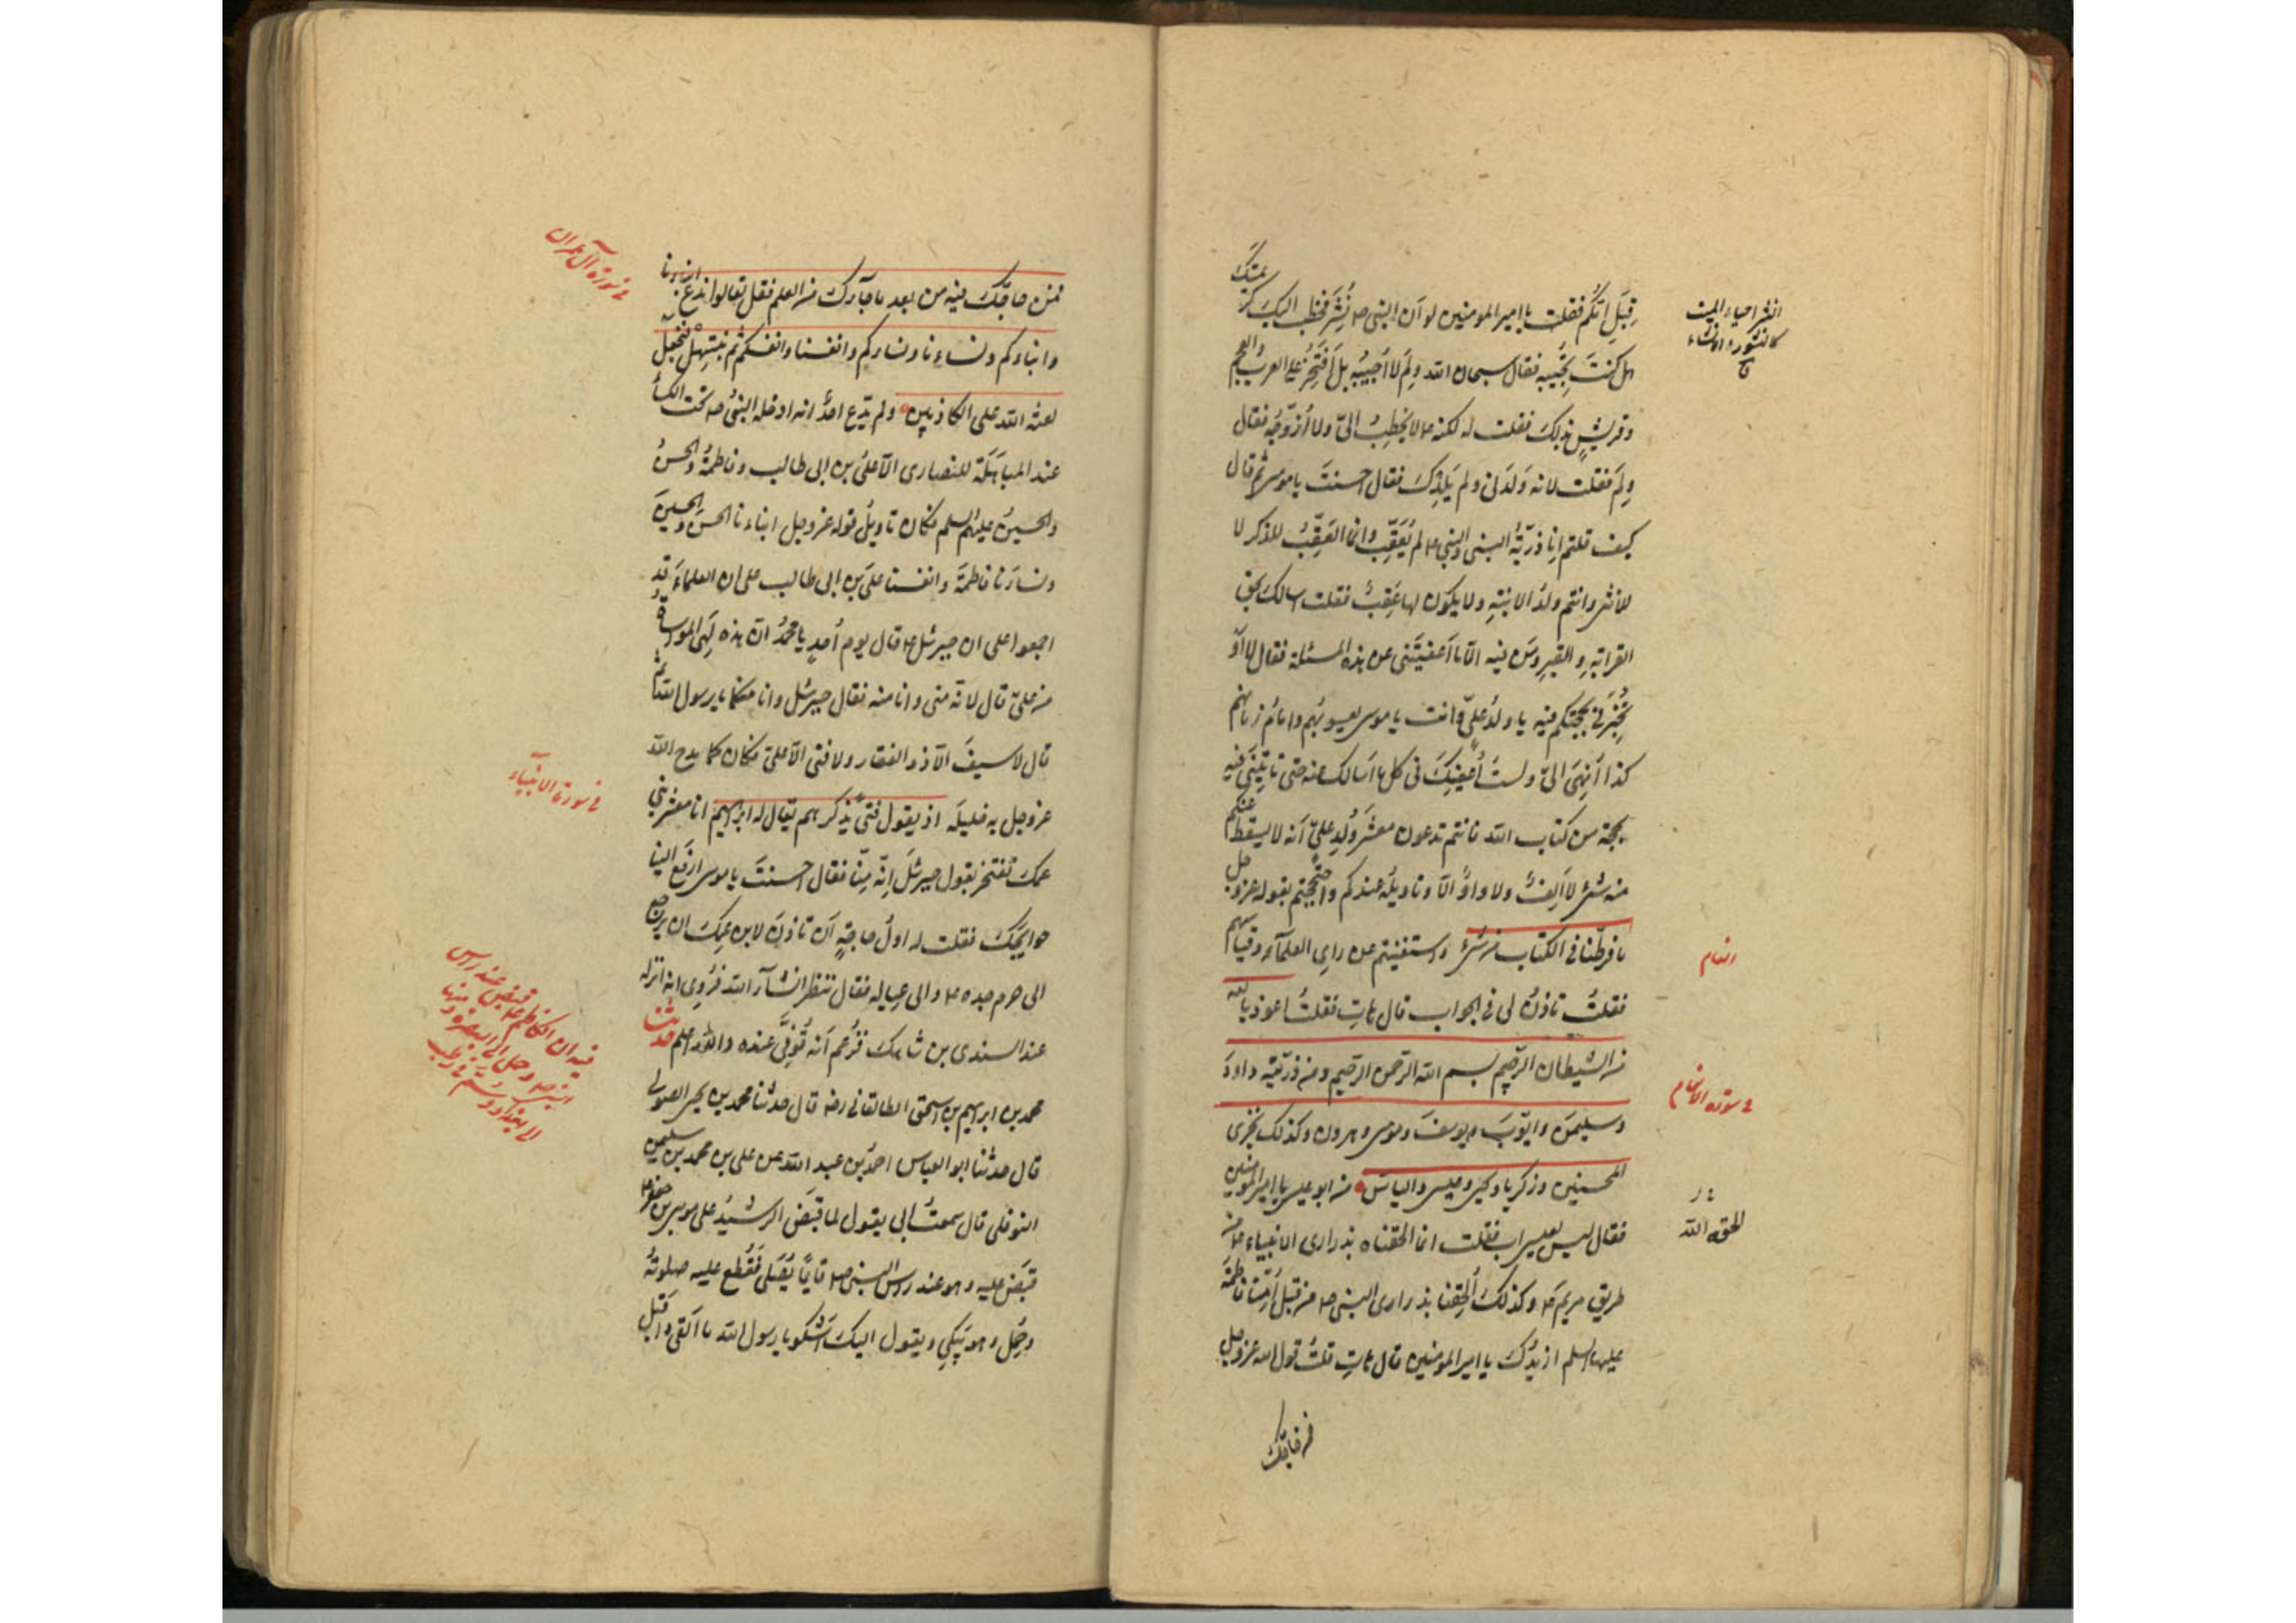 قِبَلِ اُمّكم فقلت يا امير المومنين لو اَن النبى ص نُشِرَ فخطب اليك كريمتك
هل كنتَ تُجيبه فقال سبحان الله ولِمَ لا اُجيبُه بل اَفتَخِرُ على العرب والعجم
وقريشٍ بذلك فقلت له لكنه ع لا يَخطِبُ الىّ ولا اُزوّجُه فقال
ولِمَ فقلت لانه وَلَدَنى ولم يَلِدْكَ فقال احسنتَ يا موسى ثم قال
كيف قلتم اِنا ذرّيّة النبى والنبى ع لم يُعَقِّب وانما العَقِبُ للذكر لا
للانثى وانتم ولدُ الابنةِ ولا يكون لها عَقِبٌ فقلت اسالك بحق
القرابةِ و القبر ومَن فيه الّا ما اَعفيتَنى عن هذه المسئلة فقال لا اَوْ
تُخبِرَنى بحجتكم فيه يا ولدَ علىٍّ وانت يا موسى يعسوبُهم وامامُ زمانهم
كذا اُنهِىَ الىّ ولستُ اُعفيكَ فى كل ما اَسالك عنه حتى تاتِيَنى فيه
بحجة من كتاب الله فانتم تدعون معشَرَ وُلدِ علىٍّ اَنه لا يسقط عنكم
منه شئ لا اَلِفٌ ولا واوٌ الّا وتاويلُه عندكم واحتججتم بقوله عز وجل
ما فرطنا فى الكتاب من شئ واستغنيتم عن راى العلمآء وقياسهم
فقلتُ تاذنُ لى فى الجواب قال هاتِ فقلتُ اعوذ بالله
من الشيطان الرّجيم بسم الله الرّحمن الرّحيم ومن ذرّيّته داودَ
وسليمنَ وايّوبَ ويوسفَ وموسى وهرون وكذلك نجزى
المحسنين وزكريا ويحيى وعيسى والياسَ من ابو عيسى يا امير المومنين
فقال ليس لعيسى اب فقلت انما الحقناه بذرارى الانبياء ع من
طريق مريم ع وكذلك اُلحِقنا بذرارى النبى ص من قِبَلِ اُمّنا فاطمة
عليها السلم ازيدُكَ يا امير المومنين قال هاتِ قلتُ قول الله عز وجل
فمن حاجّك
انشر احياء الميت
كالنشور والانشاء
ق
انعام
فى سورة الانعام
الحقه الله
فمن حاجّكَ فيه من بعد ما جآءك من العلم فقل تعالوا ندع ابناءنا
وابناءكم ونساءنا ونساءكم وانفسنا وانفسكم ثم نبتهل فنجعل
لعنة الله على الكاذبين ولم يدّع احدٌ انه ادخله النبىُ ص تحت الكساء
عند المباهَلَة للنصارى الّا علىُ بن ابى طالب وفاطمةُ والحسنُ
والحسينُ عليهم السلم فكان تاويلُ قوله عز وجل ابناءنا الحسنَ والحسينَ
ونساءنا فاطمةَ وانفسنا علىَ بن ابى طالب على ان العلماءَ قد
اجمعوا على ان جبرئيل ع قال يوم اُحدٍ يا محمدُ انّ هذه لَهِىَ المواساة
من علىّ قال لانّه منى وانا منه فقال جبرئيل وانا منكما يا رسول الله ثم
قال لا سيفَ الّا ذو الفقار ولا فتى الّا علىّ فكان كما مدح الله
عز وجل به خليلَه اذ يقول فتىً يذكرهم يقال له ابرهيم انا معشر بنى
عمك نفتخر بقول جبرئيلَ اِنّه مِنّا فقال احسنتَ يا موسى ارفع الينا
حوايجَكَ فقلت له اولُ حاجةٍ اَن تاذنَ لابن عمكَ ان يرجع
الى حرم جده ع والى عِياله فقال ننظر انشآء الله فرُوِى انه انزله
عند السندى بن شاهك فزُعم اَنه تُوفّىَ عنده والله اعلم حدثنا
محمد بن ابرهيم بن اسحق الطالقانى رضه قال حدثنا محمد بن يحيى الصولى
قال حدثنا ابو العباس احمدُ بن عبد الله عن على بن محمد بن سليمن
النوفلى قال سمعتُ ابى يقول لما قبَضَ الرشيدُ على موسى بن جعفر ع
قبَض عليه وهو عند راس النبى ص قايمًا يُصَلى فقُطع عليه صلوتُه
وحُمِل وهو يَبكى ويقول اليك اَشكو يا رسول الله ما اَلقى واَقبل
فى سورة آل عمران
فى سورة الانبياء
فيه ان الكاظم ع قبض عند راس
النبى ص وحمل الى البصرة ومنها
الى بغداد وسُمّ فى رطب